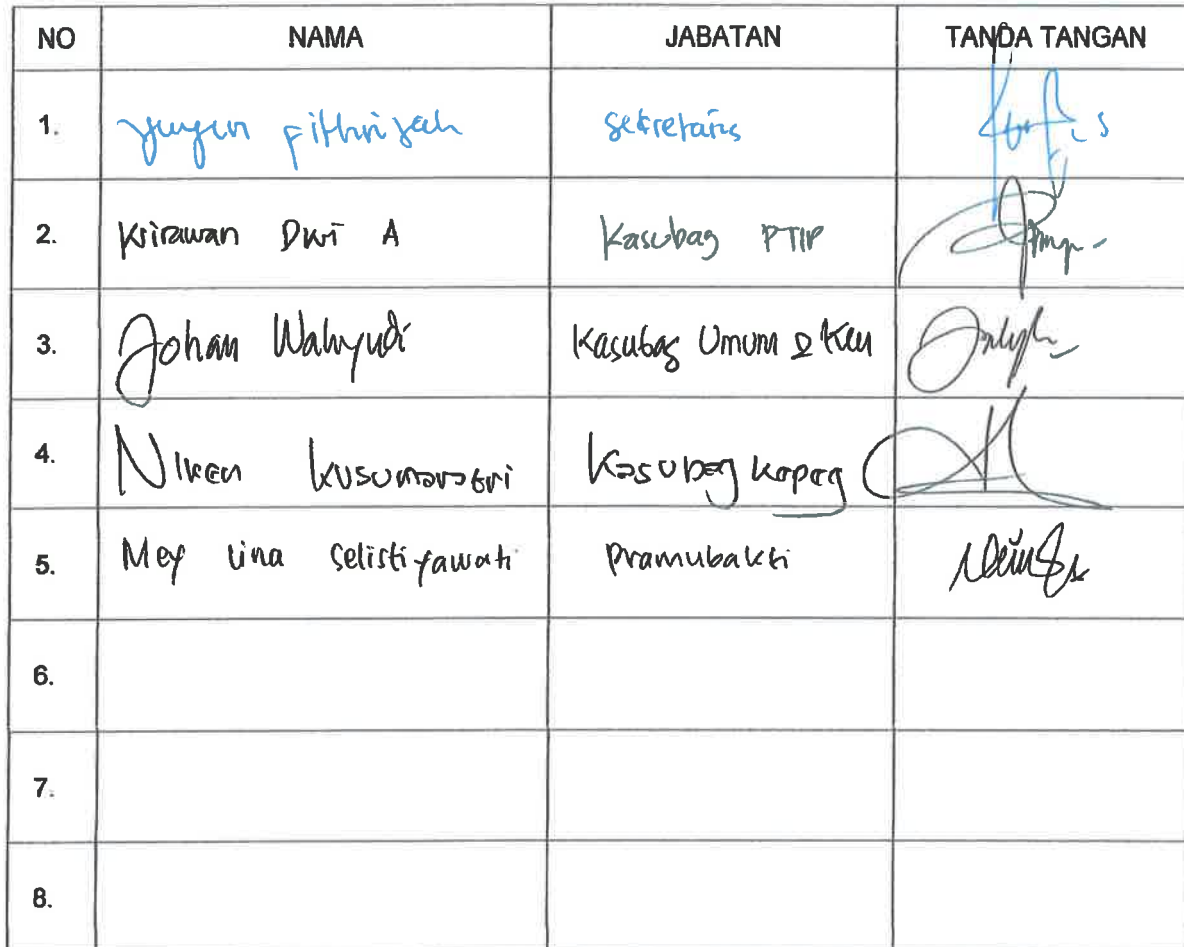 NO NAMA JABATAN TANDA TANGAN
1. Yuyun Fithriyah sekretaris
2. Krirawan Dwi A Kasubag PTIP
3. Johan Wahyudi Kasubag Umum & Keu
4. Niken Kusumarastri Kasubag Kepeg
5. Mey Lina Selistiyawati Pramubakti
6.
7.
8.